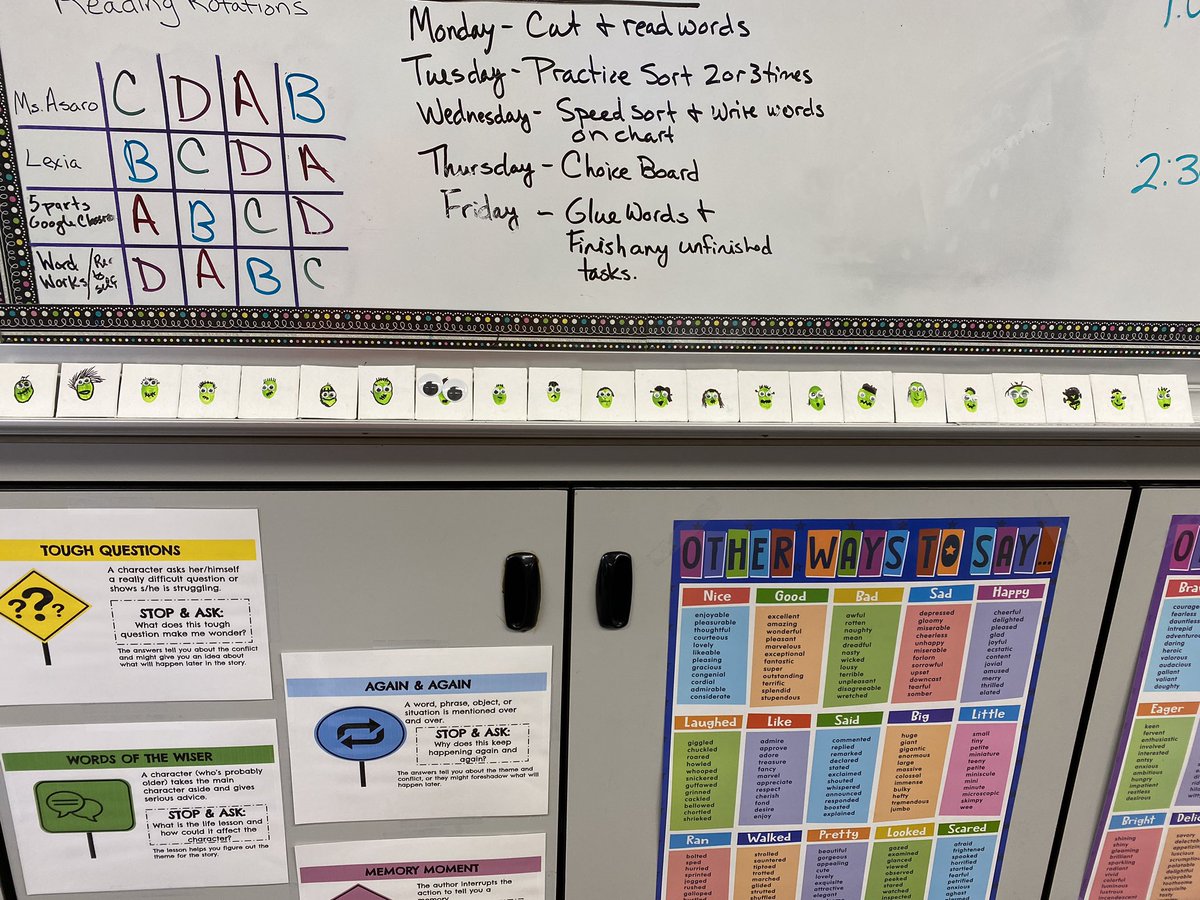 Reading Rotations
Ms. Asaro C D A B
Lexia B C D A
5 parts
Google Classro A B C D
Word
Works/ D A B C
Monday - Cut + read words
Tuesday - Practice Sort 2 or 3 times
Wednesday - Speed sort + write words
on chart
Thursday - Choice Board
Friday - Glue Words +
Finish any unfinished
tasks.
2:3
TOUGH QUESTIONS
A character asks her/himself
a really difficult question or
shows s/he is struggling.
STOP & ASK:
What does this tough
question make me wonder?
The answers tell you about the conflict
and might give you an idea about
what will happen later in the story.
WORDS OF THE WISER
A character (who's probably
older) takes the main
character aside and gives
serious advice.
STOP & ASK:
What is the life lesson and
how could it affect the
character?
The lesson helps you figure out the
theme for the story.
AGAIN & AGAIN
A word, phrase, object, or
situation is mentioned over
and over.
STOP & ASK:
Why does this keep
happening again and
again?
The answers tell you about the theme and
conflict, or they might foreshadow what will
happen later.
MEMORY MOMENT
The author interrupts the
action to tell you a
OTHER WAYS TO SAY...
Nice
enjoyable
pleasurable
thoughtful
courteous
lovely
likeable
pleasing
gracious
congenial
cordial
admirable
considerate
Good
excellent
amazing
wonderful
pleasant
marvelous
exceptional
fantastic
super
outstanding
terrific
splendid
stupendous
Bad
awful
rotten
naughty
mean
dreadful
nasty
wicked
lousy
terrible
unpleasant
disagreeable
wretched
Sad
depressed
gloomy
miserable
cheerless
unhappy
miserable
forlorn
sorrowful
upset
downcast
tearful
somber
Happy
cheerful
delighted
pleased
glad
joyful
ecstatic
content
jovial
amused
merry
thrilled
elated
Laughed
giggled
chuckled
roared
howled
whooped
snickered
guffawed
grinned
cackled
bellowed
chortled
shrieked
Like
admire
approve
adore
treasure
fancy
marvel
appreciate
respect
cherish
fond
desire
enjoy
Said
commented
replied
remarked
declared
stated
exclaimed
shouted
whispered
announced
responded
boasted
explained
Big
huge
giant
gigantic
enormous
large
massive
colossal
immense
bulky
hefty
tremendous
jumbo
Little
small
tiny
petite
miniature
teeny
petite
miniscule
mini
minute
microscopic
skimpy
wee
Ran
bolted
sped
hurried
sprinted
jogged
rushed
galloped
Walked
strolled
sauntered
tiptoed
trotted
marched
glided
strutted
shuffled
Pretty
beautiful
gorgeous
appealing
cute
lovely
exquisite
attractive
elegant
Looked
gazed
examined
glanced
viewed
observed
peeked
stared
watched
inspected
Scared
afraid
frightened
spooked
horrified
startled
fearful
petrified
anxious
aghast
Brav
courage
fearless
dauntless
intrepid
adventure
daring
heroic
valorous
audacious
gallant
valiant
doughty
Eager
keen
fervent
enthusiastic
involved
interested
antsy
anxious
ambitious
hungry
impatient
restless
desirous
Bright
shining
shiny
gleaming
brilliant
sparkling
radiant
vivid
colorful
luminous
lustrous
incandescent
Delic
savory
delectab
appetizin
luscious
scrumptio
palatable
delightful
enjoyable
toothsome
exquisite
tasty